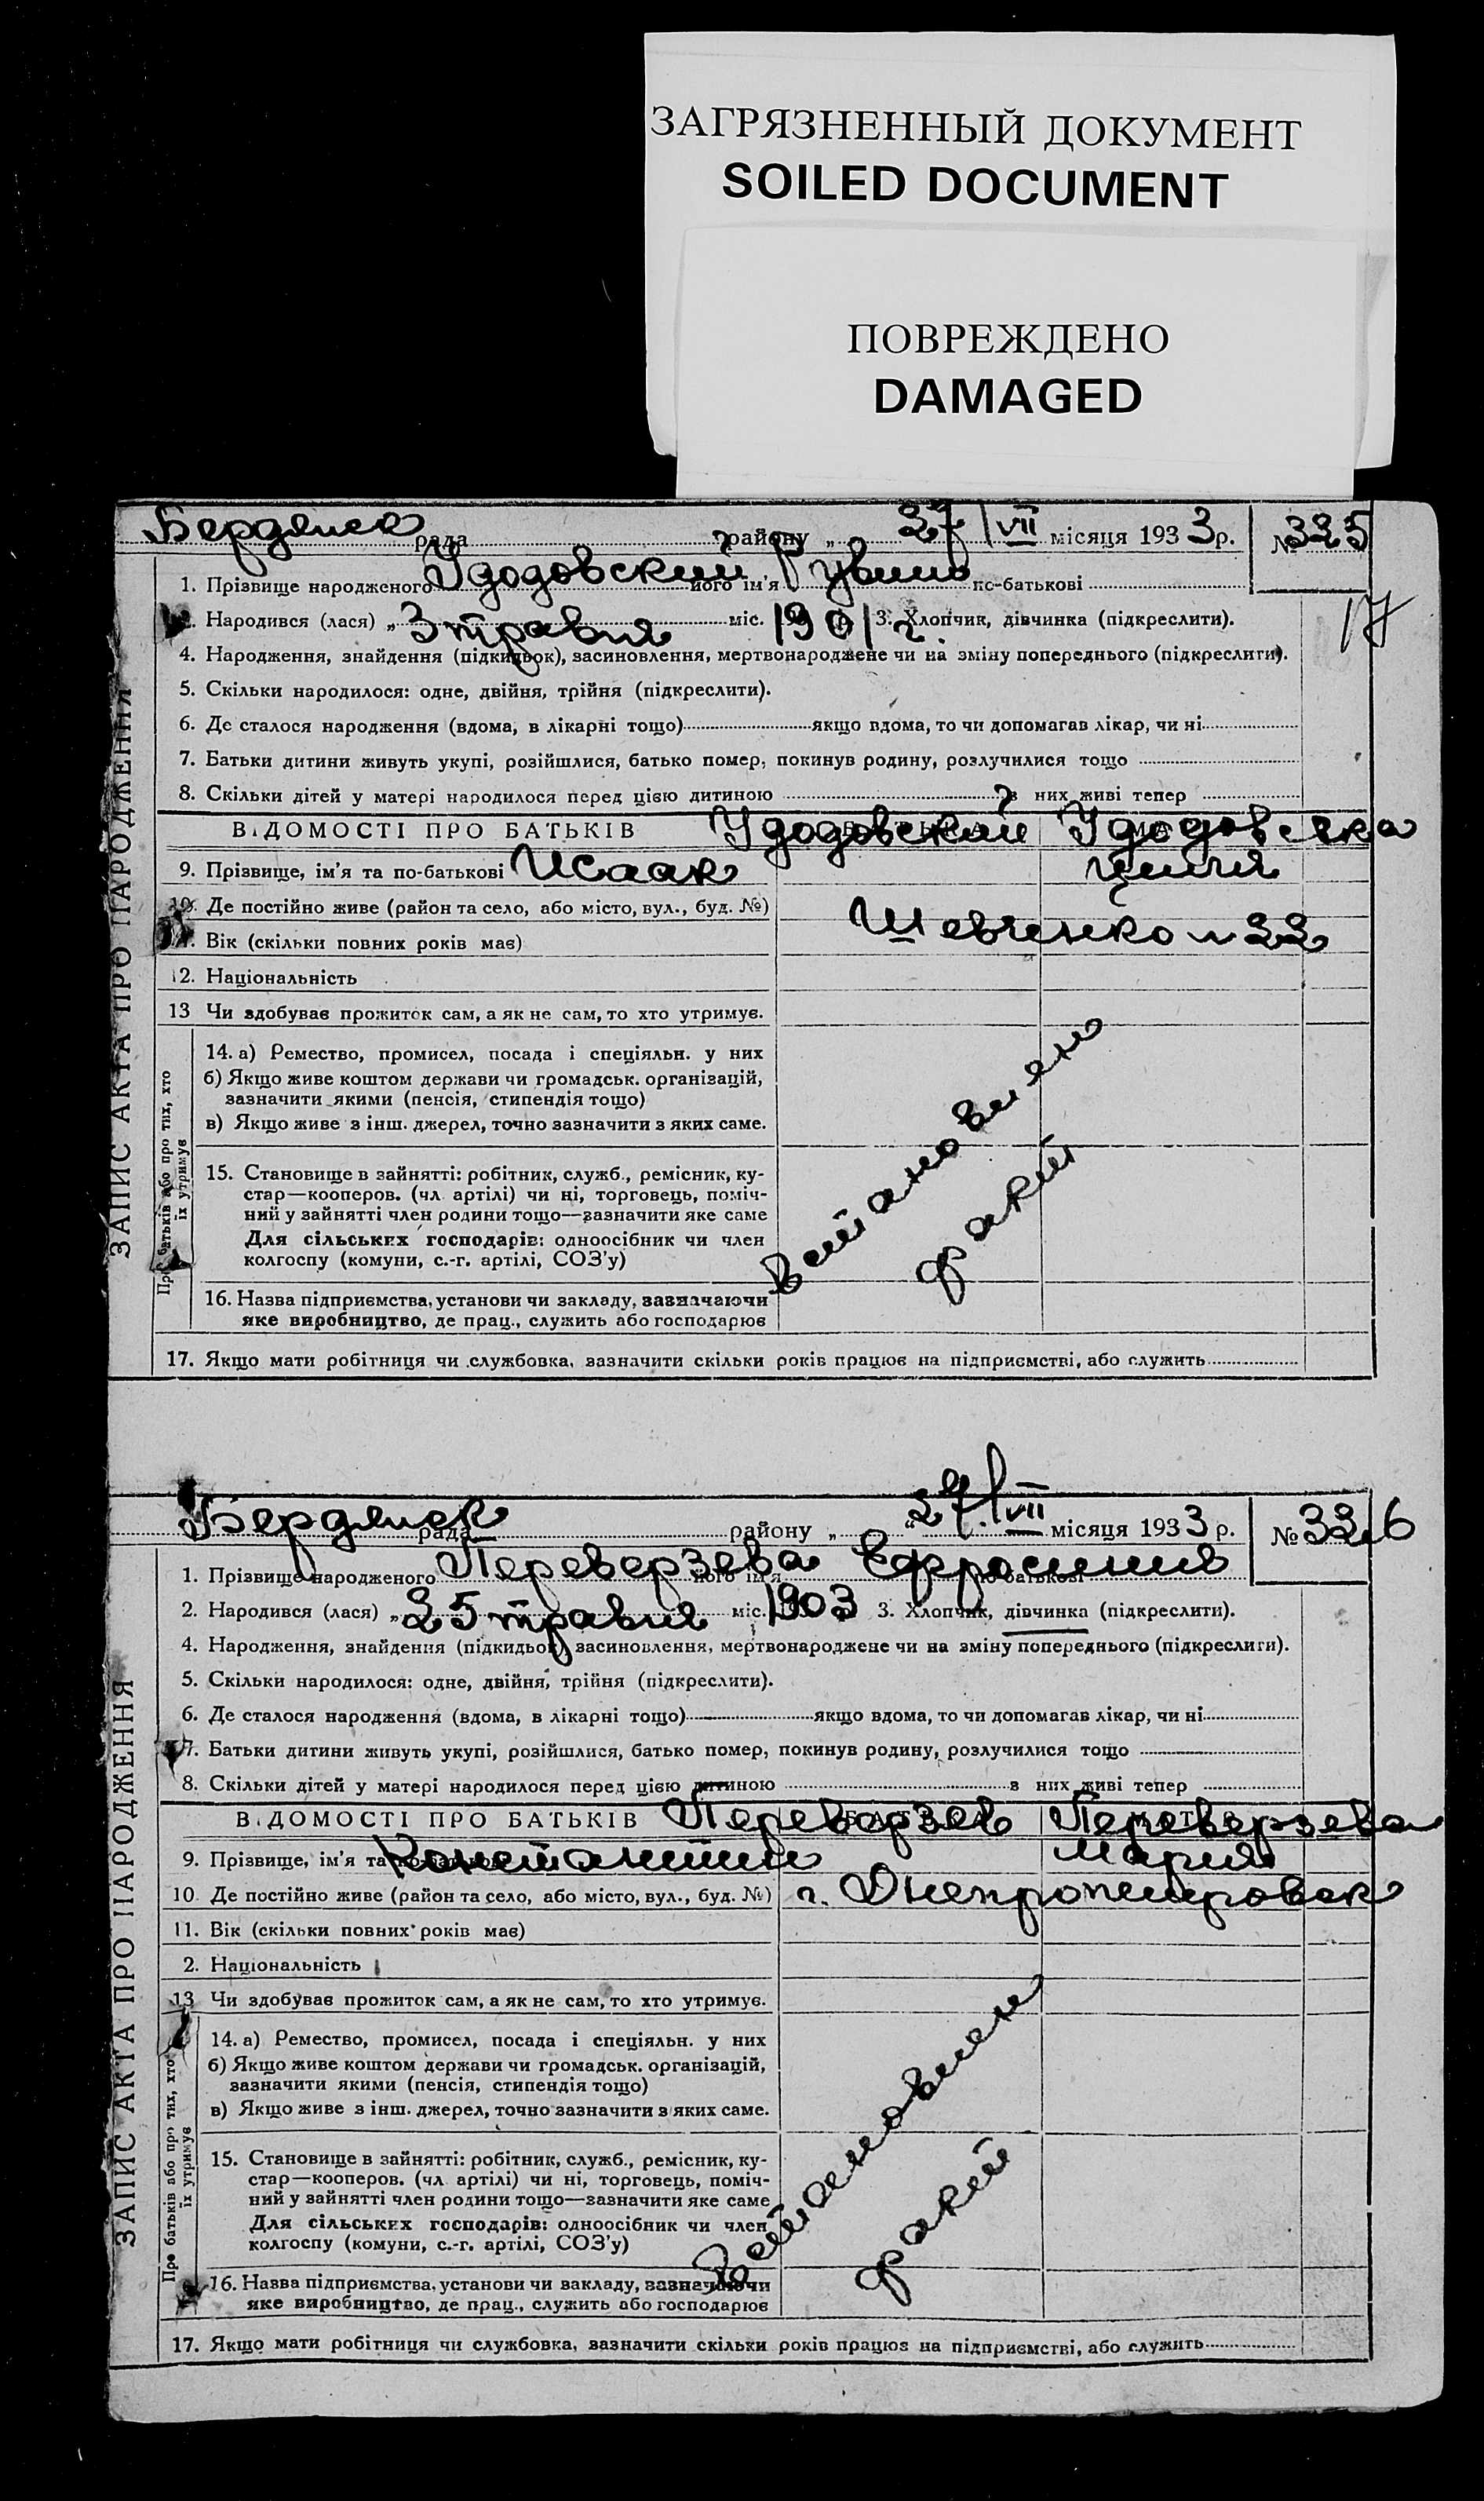 ЗАГРЯЗНЕННЫЙ ДОКУМЕНТ
SOILED DOCUMENT
ПОВРЕЖДЕНО
DAMAGED
Бердянск рада району „ 27/VII місяця 1933 р. № 325
1. Прізвище народженого Удодовский його ім'я Рувин по-батькові
17
2. Народився (лася) „ 3 травня міс. 1901 г. 3. Хлопчик, дівчинка (підкреслити).
4. Народження, знайдення (підкидьок), засиновлення, мертвонароджене чи на зміну попереднього (підкреслити).
5. Скільки народилося: одне, двійня, трійня (підкреслити).
6. Де сталося народження (вдома, в лікарні тощо) якщо вдома, то чи допомагав лікар, чи ні
7. Батьки дитини живуть укупі, розійшлися, батько помер, покинув родину, розлучилися тощо
8. Скільки дітей у матері народилося перед цією дитиною з них живі тепер
ВІДОМОСТІ ПРО БАТЬКІВ Удодовский Удодовска
9. Прізвище, ім'я та по-батькові Исаак Циля
10. Де постійно живе (район та село, або місто, вул., буд. №)
Шевченко № 22
11. Вік (скільки повних років має)
12. Національність
13 Чи здобував прожиток сам, а як не сам, то хто утримує.
14. а) Ремество, промисел, посада і спеціяльн. у них
б) Якщо живе коштом держави чи громадськ. організацій,
зазначити якими (пенсія, стипендія тощо)
в) Якщо живе з інш. джерел, точно зазначити з яких саме.
15. Становище в зайнятті: робітник, служб., ремісник, ку-
стар—кооперов. (чл. артілі) чи ні, торговець, поміч-
ний у зайнятті член родини тощо—зазначити яке саме
Для сільських господарів: одноосібник чи член
колгоспу (комуни, с.-г. артілі, СОЗ'у)
16. Назва підприємства, установи чи закладу, зазначаючи
яке виробництво, де прац., служить або господарює
17. Якщо мати робітниця чи службовка, зазначити скільки років працює на підприємстві, або служить
Встановлено
факт
ЗАПИС АКТА ПРО НАРОДЖЕННЯ
Про батьків або про тих, хто
їх утримує
Бердянск рада району „ 27/VII місяця 1933 р. № 326
1. Прізвище народженого Переверзева його ім'я Ефросиния по-батькові
2. Народився (лася) „ 25 травня міс. 1903 3. Хлопчик, дівчинка (підкреслити).
4. Народження, знайдення (підкидьок), засиновлення, мертвонароджене чи на зміну попереднього (підкреслити).
5. Скільки народилося: одне, двійня, трійня (підкреслити).
6. Де сталося народження (вдома, в лікарні тощо) якщо вдома, то чи допомагав лікар, чи ні
7. Батьки дитини живуть укупі, розійшлися, батько помер, покинув родину, розлучилися тощо
8. Скільки дітей у матері народилося перед цією дитиною з них живі тепер
ВІДОМОСТІ ПРО БАТЬКІВ Переверзев Переверзева
9. Прізвище, ім'я та по-батькові Константин Мария
10 Де постійно живе (район та село, або місто, вул., буд. №) г. Днепропетровск
11. Вік (скільки повних років має)
2. Національність
13 Чи здобував прожиток сам, а як не сам, то хто утримує.
14. а) Ремество, промисел, посада і спеціяльн. у них
б) Якщо живе коштом держави чи громадськ. організацій,
зазначити якими (пенсія, стипендія тощо)
в) Якщо живе з інш. джерел, точно зазначити з яких саме.
15. Становище в зайнятті: робітник, служб., ремісник, ку-
стар—кооперов. (чл артілі) чи ні, торговець, поміч-
ний у зайнятті член родини тощо—зазначити яке саме
Для сільських господарів: одноосібник чи член
колгоспу (комуни, с.-г. артілі, СОЗ'у)
16. Назва підприємства, установи чи закладу, зазначаючи
яке виробництво, де прац., служить або господарює
17. Якщо мати робітниця чи службовка, зазначити скільки років працює на підприємстві, або служить
Встановлен
факт
ЗАПИС АКТА ПРО НАРОДЖЕННЯ
Про батьків або про тих, хто
їх утримує